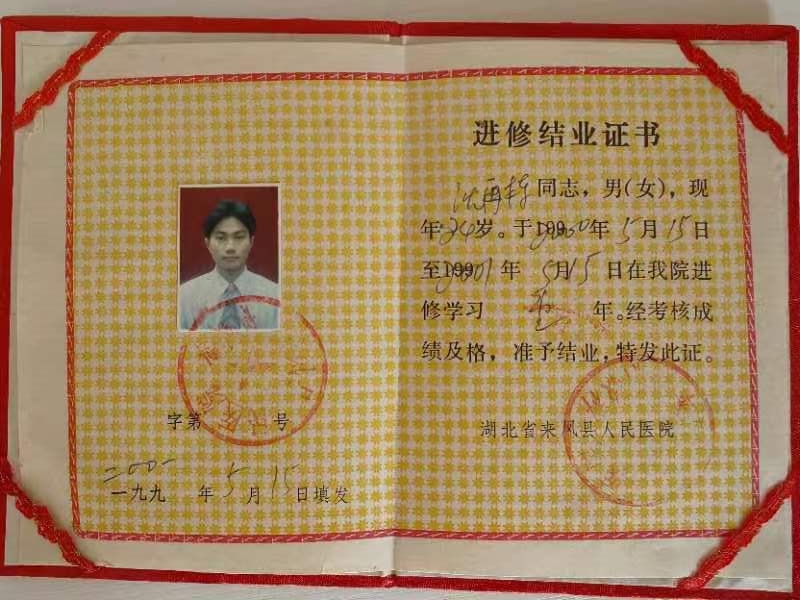 字第 号
二〇〇一
一九九 年5月15日填发
进修结业证书
同志，男(女)，现
年24岁。于2000年5月15日
至2001年5月15日在我院进
修学习 壹 年。经考核成
绩及格，准予结业，特发此证。
湖北省来凤县人民医院